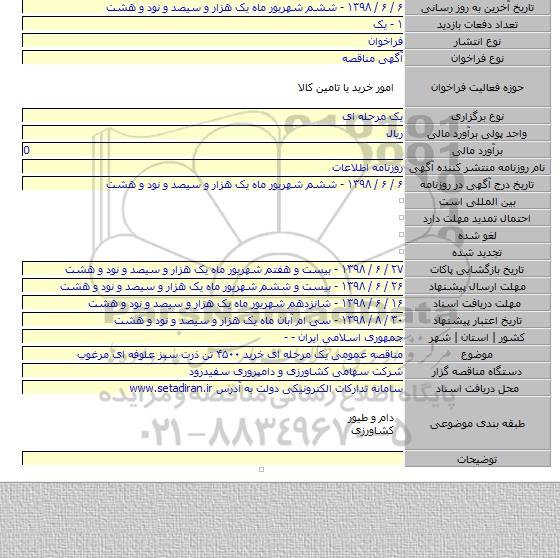 تاریخ آخرین به روز رسانی ۶ / ۶ / ۱۳۹۸ - ششم شهریور ماه یک هزار و سیصد و نود و هشت
تعداد دفعات بازدید ۱ - یک
نوع انتشار فراخوان
نوع فراخوان آگهی مناقصه
حوزه فعالیت فراخوان امور خرید یا تامین کالا
نوع برگزاری یک مرحله ای
واحد پولی برآورد مالی ریال
برآورد مالی 0
نام روزنامه منتشر کننده آگهی روزنامه اطلاعات
تاریخ درج آگهی در روزنامه ۶ / ۶ / ۱۳۹۸ - ششم شهریور ماه یک هزار و سیصد و نود و هشت
بین المللی است
احتمال تمدید مهلت دارد
لغو شده
تجدید شده
تاریخ بازگشایی پاکات ۲۷ / ۶ / ۱۳۹۸ - بیست و هفتم شهریور ماه یک هزار و سیصد و نود و هشت
مهلت ارسال پیشنهاد ۲۶ / ۶ / ۱۳۹۸ - بیست و ششم شهریور ماه یک هزار و سیصد و نود و هشت
مهلت دریافت اسناد ۱۶ / ۶ / ۱۳۹۸ - شانزدهم شهریور ماه یک هزار و سیصد و نود و هشت
تاریخ اعتبار پیشنهاد ۳۰ / ۸ / ۱۳۹۸ - سی ام آبان ماه یک هزار و سیصد و نود و هشت
کشور | استان | شهر جمهوری اسلامی ایران - -
موضوع مناقصه عمومی یک مرحله ای خرید ۴۵۰۰ تن ذرت سبز علوفه ای مرغوب
دستگاه مناقصه گزار شرکت سهامی کشاورزی و دامپروری سفیدرود
محل دریافت اسناد سامانه تدارکات الکترونیکی دولت به آدرس www.setadiran.ir
پایگاه اطلاع رسانی مناقصه و مزایده
طبقه بندی موضوعی دام و طیور
کشاورزی
۰۲۱-۸۸۳۴۹۶۷۰-۵
توضیحات